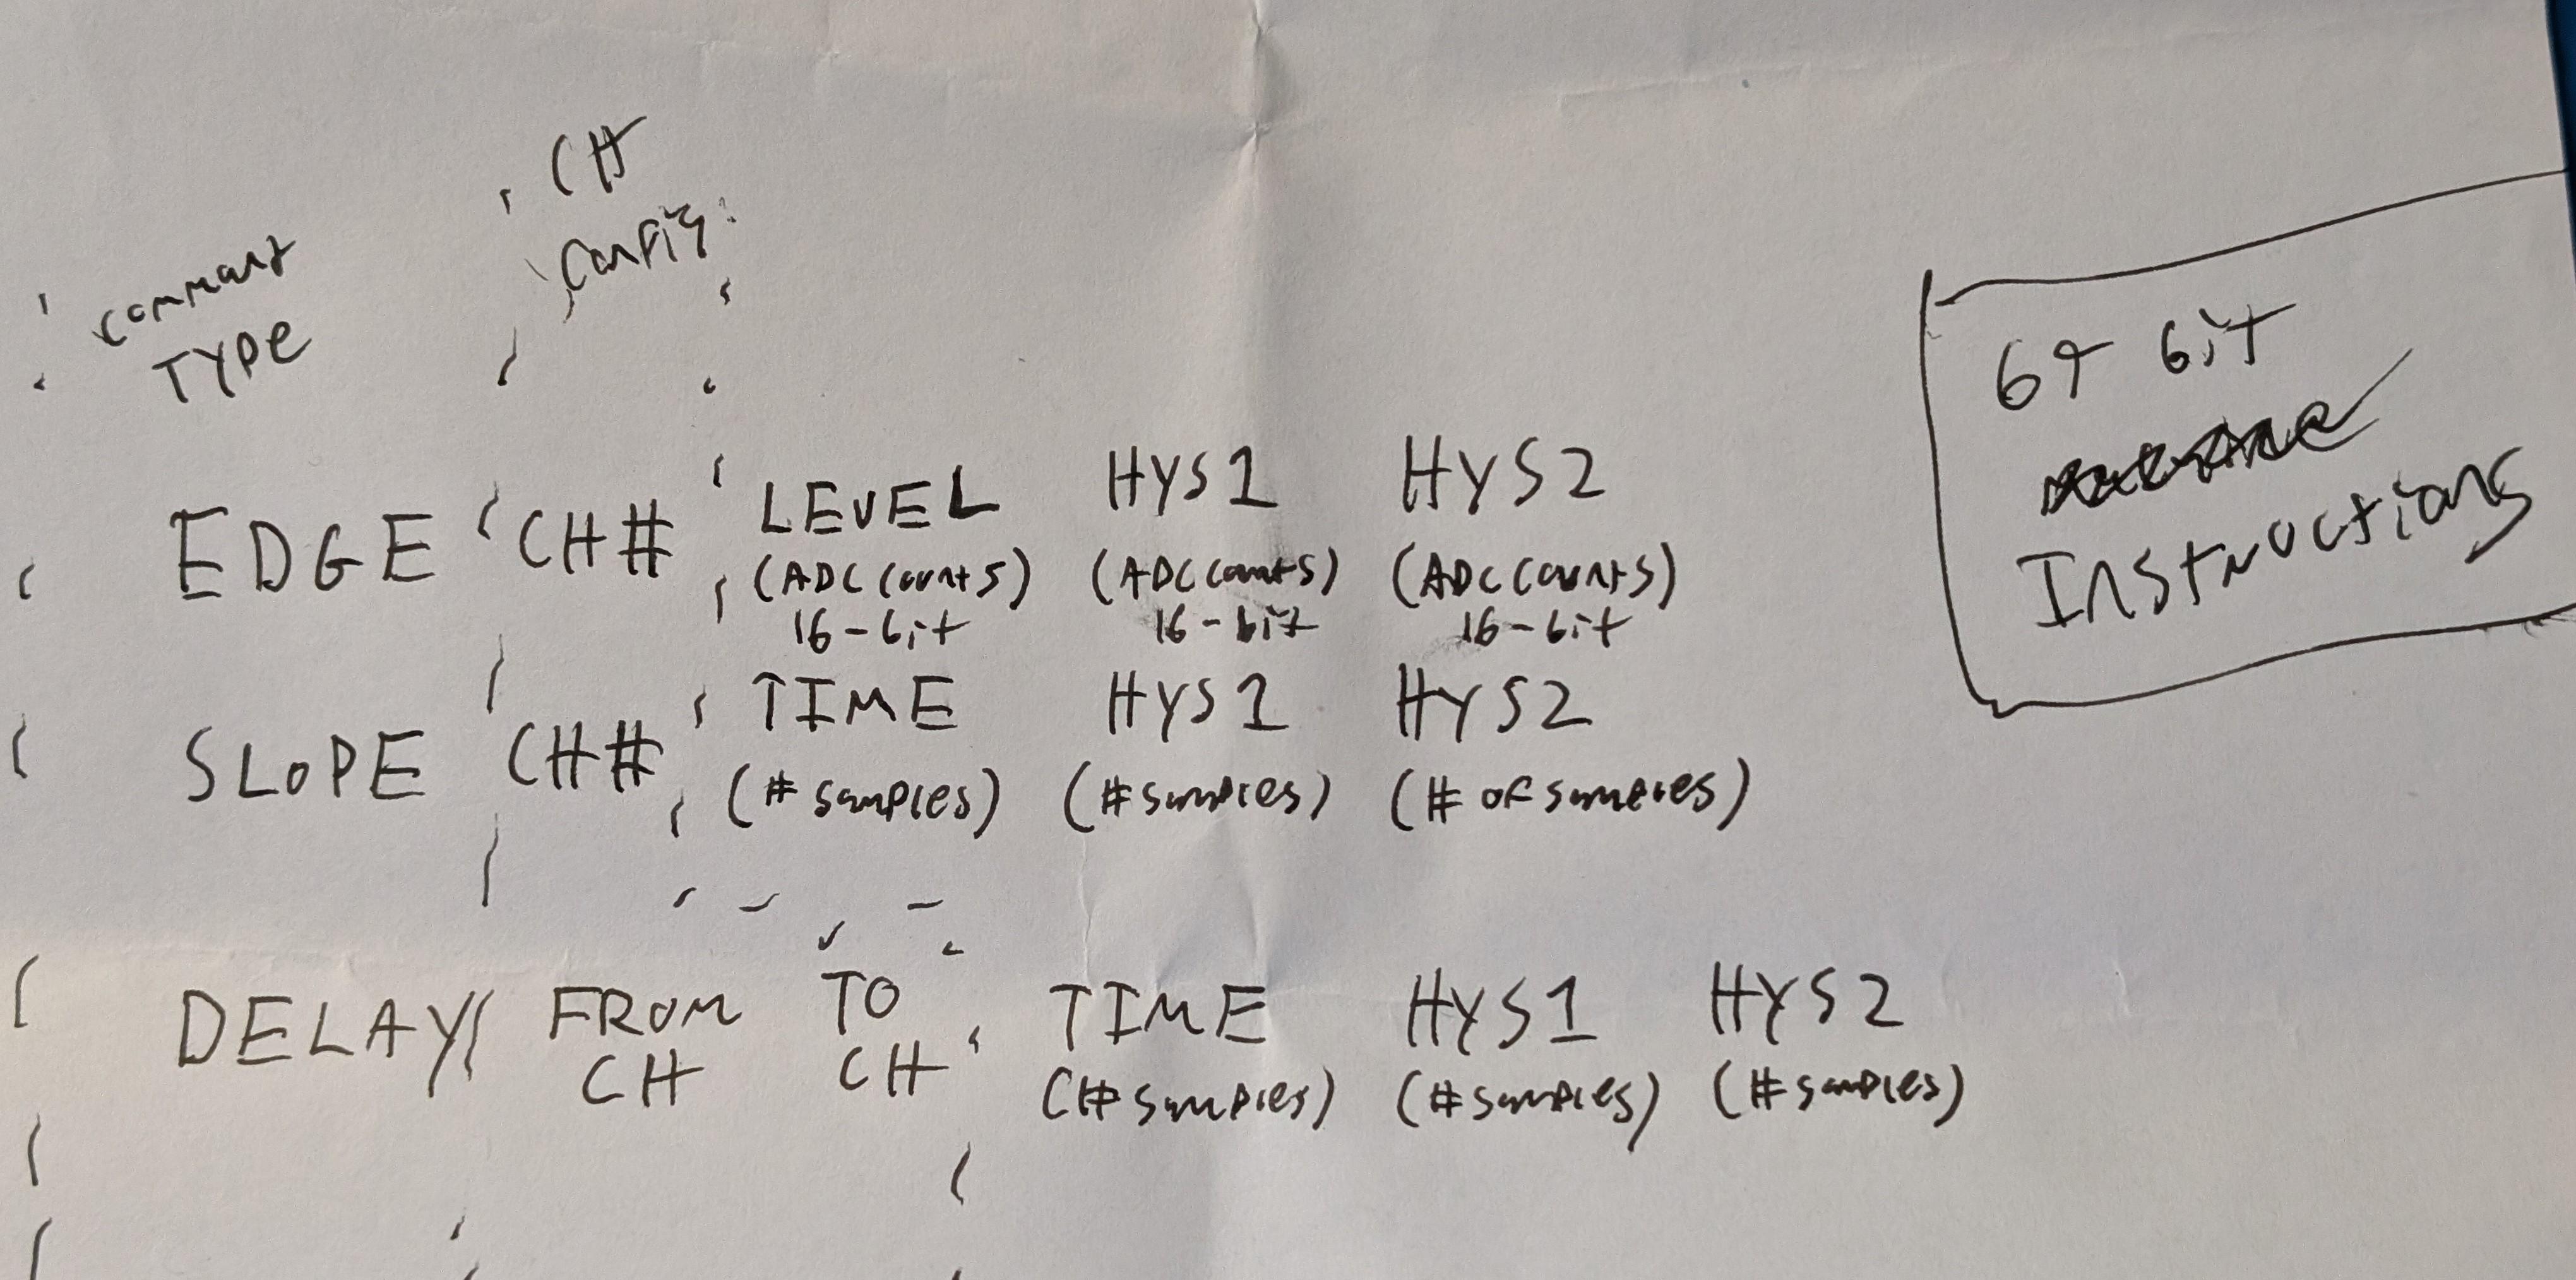 Command
TYPE
CH
Config
64 bit
Instructions
EDGE CH# LEVEL HYS1 HYS2
(ADC Counts) (ADC Counts) (ADC Counts)
16-bit 16-bit 16-bit
SLOPE CH# TIME HYS1 HYS2
(# samples) (# samples) (# of samples)
DELAY FROM CH TO CH TIME HYS1 HYS2
(# samples) (# samples) (# samples)